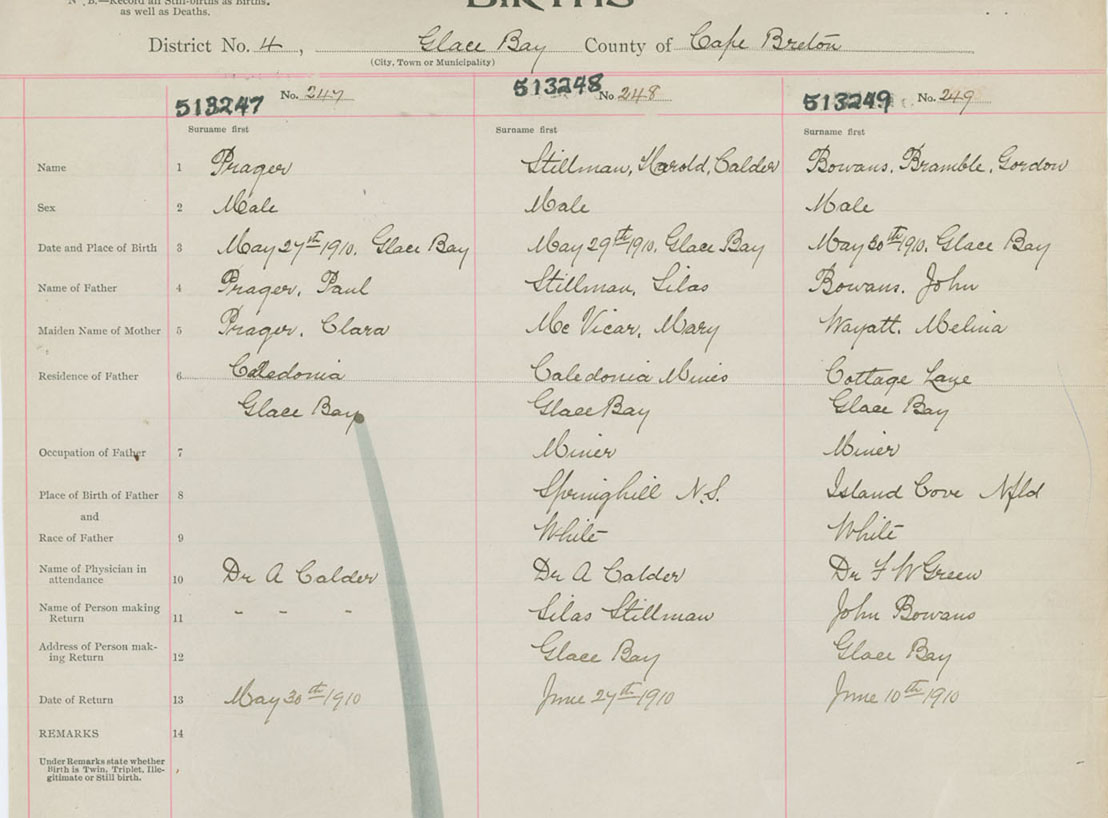 N.B.—Record all Still-births as Births,
as well as Deaths.
BIRTHS
District No. 4, Glace Bay County of Cape Breton
(City, Town or Municipality)
513247 No. 247 513248 No 248 513249 No. 249
Surname first Surname first Surname first
Name 1 Prager Stillman, Harold, Calder Bowans, Bramble, Gordon
Sex 2 Male Male Male
Date and Place of Birth 3 May 27th 1910. Glace Bay May 29th 1910. Glace Bay May 30th 1910. Glace Bay
Name of Father 4 Prager, Paul Stillman, Silas Bowans, John
Maiden Name of Mother 5 Prager, Clara Mc Vicar, Mary Wayatt, Melina
Residence of Father 6 Caledonia Caledonia Mines Cottage Lane
Glace Bay Glace Bay Glace Bay
Occupation of Father 7 Miner Miner
Place of Birth of Father 8 Springhill N.S. Island Cove Nfld
and
Race of Father 9 White White
Name of Physician in
attendance 10 Dr A Calder Dr A Calder Dr F W Green
Name of Person making
Return 11 " " " Silas Stillman John Bowans
Address of Person mak-
ing Return 12 Glace Bay Glace Bay
Date of Return 13 May 30th 1910 June 27th 1910 June 10th 1910
REMARKS 14
Under Remarks state whether
Birth is Twin, Triplet, Ille-
gitimate or Still birth.